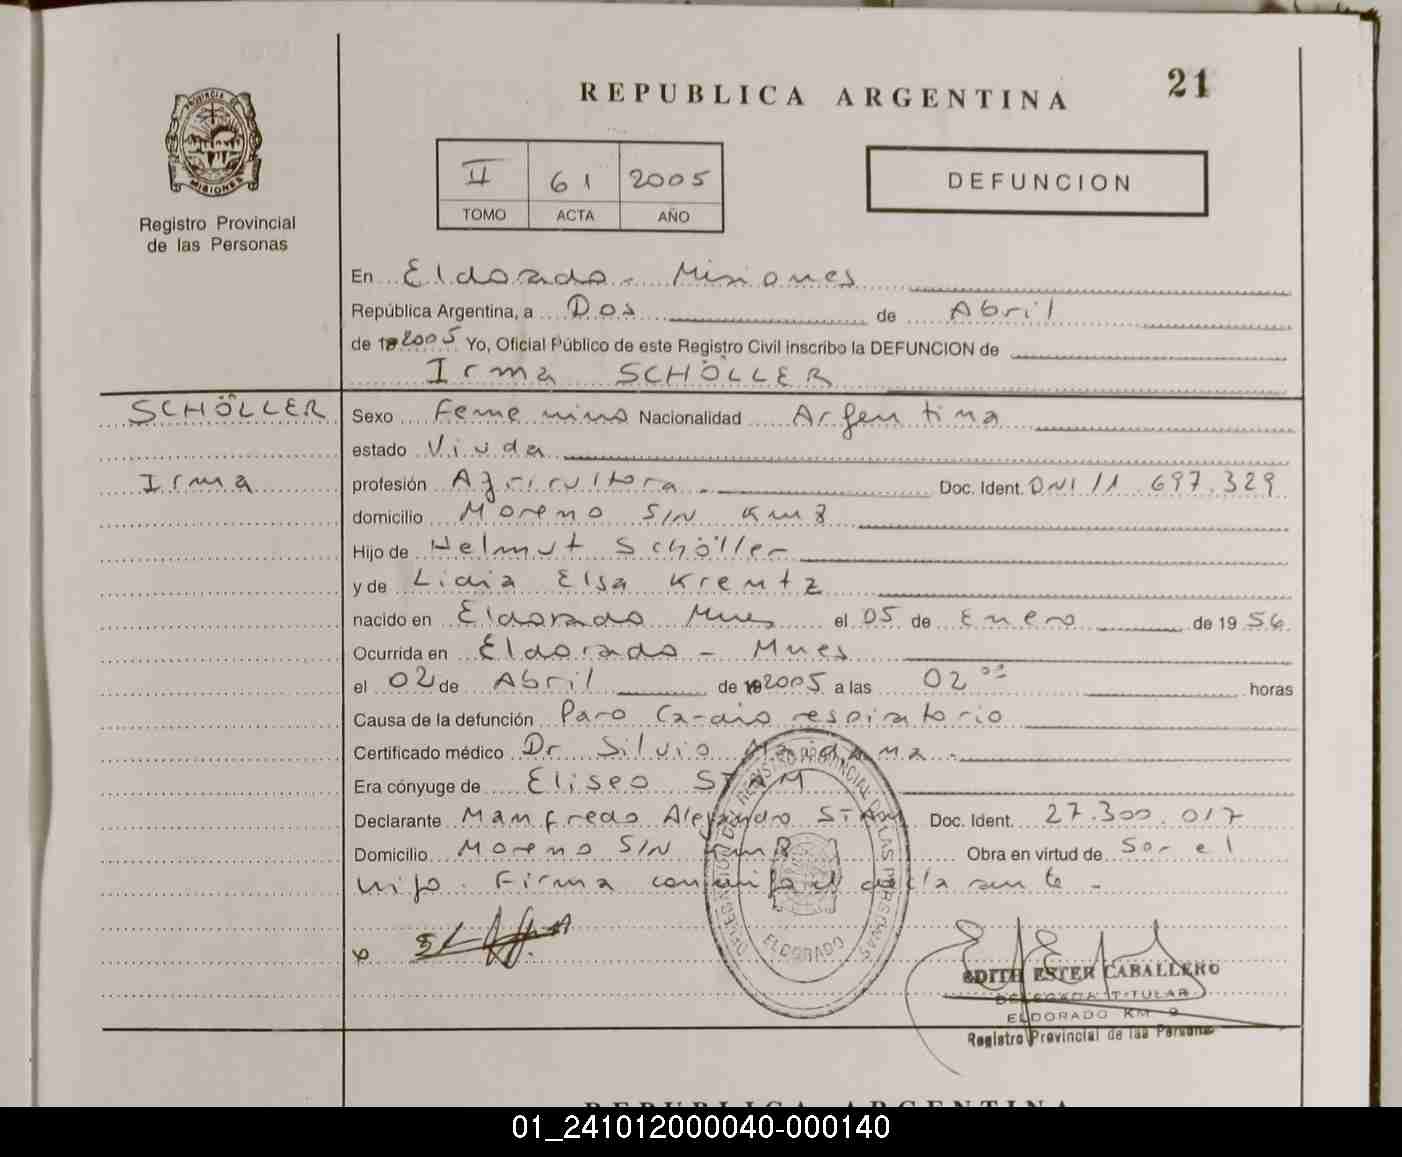 REPUBLICA ARGENTINA
21
PROVINCIA DE
MISIONES
Registro Provincial
de las Personas
II 61 2005
TOMO ACTA AÑO
DEFUNCION
En Eldorado - Misiones
República Argentina, a Dos de Abril
de 2005 Yo, Oficial Público de este Registro Civil inscribo la DEFUNCION de
Irma SCHÖLLER
SCHÖLLER
Irma
Sexo Femenino Nacionalidad Argentina
estado Viuda
profesión Agricultora - Doc. Ident. DNI 11.697.329
domicilio Moreno S/N Km 8
Hijo de Helmut Schöller
y de Lidia Elsa Krentz
nacido en Eldorado Mnes el 05 de Enero de 1956
Ocurrida en Eldorado - Mnes
el 02 de Abril de 2005 a las 02 horas
Causa de la defunción Paro Cardio respiratorio
Certificado médico Dr. Silvio
Era cónyuge de Eliseo STAM
Declarante Manfredo Alejandro STAM Doc. Ident. 27.300.017
Domicilio Moreno S/N Km 8 Obra en virtud de Ser el
hijo. Firma conmigo el declarante -
DELEGACION DEL REGISTRO PROVINCIAL DE LAS PERSONAS
ELDORADO
EDITH ESTER CABALLERO
DELEGADA TITULAR
ELDORADO KM 9
Registro Provincial de las Personas
REPUBLICA ARGENTINA
01_241012000040-000140